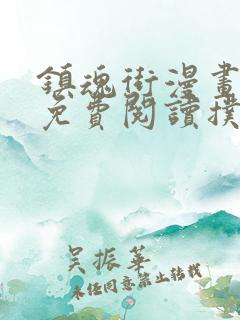 鎮魂街漫畫
免費閱讀撲
吳振華
未经同意禁止转载